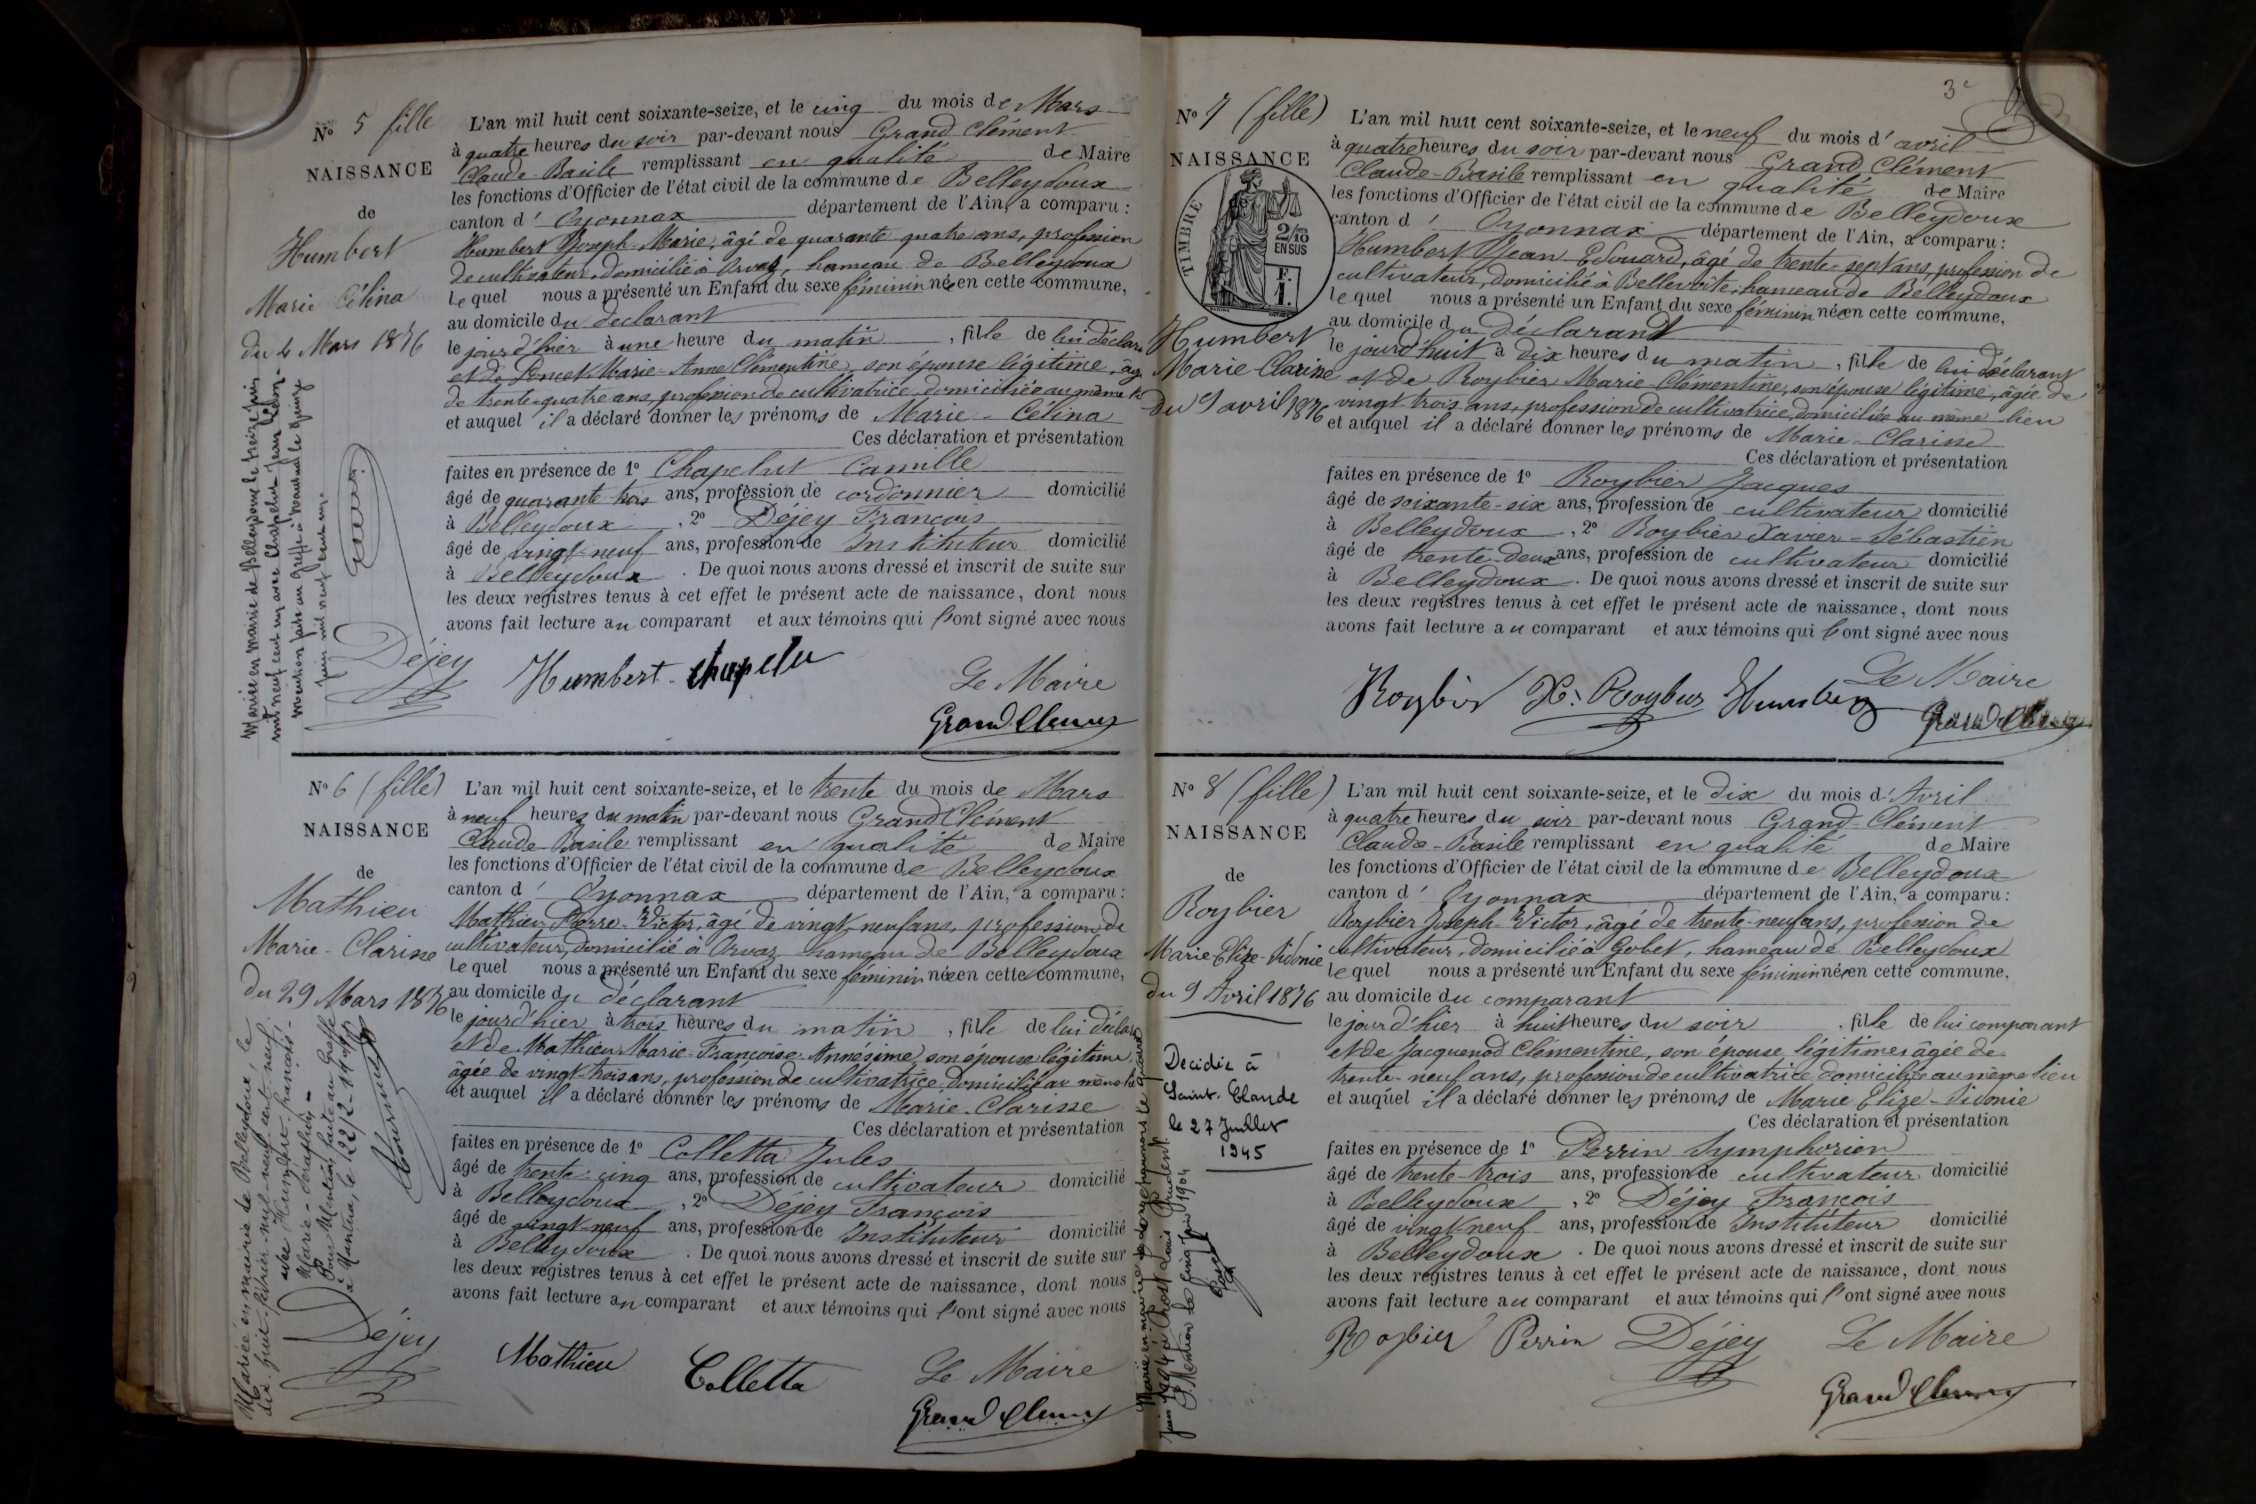 N° 5 fille
NAISSANCE
de
Humbert
Marie Célina
du 4 Mars 1876
L'an mil huit cent soixante-seize, et le cinq du mois de Mars
à quatre heures du soir par-devant nous Grand Clément
Claude-Basile remplissant en qualité de Maire
les fonctions d'Officier de l'état civil de la commune de Belleydoux
canton d' Oyonnax département de l'Ain, a comparu :
Humbert Joseph-Marie, âgé de quarante quatre ans, profession
de cultivateur, domicilié à Orvaz, hameau de Belleydoux
Le quel nous a présenté un Enfant du sexe féminin née en cette commune,
au domicile du déclarant
le jour d'hier à une heure du matin, fille de lui déclara
et de Poncet Marie-Anne Clémentine, son épouse légitime, âg
de trente-quatre ans, profession de cultivatrice domiciliée au même
et auquel il a déclaré donner les prénoms de Marie-Célina
Ces déclaration et présentation
faites en présence de 1° Chapelut Camille
âgé de quarante trois ans, profession de cordonnier domicilié
à Belleydoux, 2° Déjey François
âgé de vingt-neuf ans, profession de Instituteur domicilié
à Belleydoux. De quoi nous avons dressé et inscrit de suite sur
les deux registres tenus à cet effet le présent acte de naissance, dont nous
avons fait lecture au comparant et aux témoins qui l'ont signé avec nous
Mariée en mairie de Belleydoux le treize juin
mil neuf cent un avec Chapelut Jean Léon
mention faite au greffe à Nantua le quinze
juin mil neuf cent un
Déjey Humbert Chapelu Le Maire
Grand Clément
N° 6 (fille)
NAISSANCE
de
Mathieu
Marie-Clarisse
du 29 Mars 1876
L'an mil huit cent soixante-seize, et le trente du mois de Mars
à neuf heures du matin par-devant nous Grand Clément
Claude-Basile remplissant en qualité de Maire
les fonctions d'Officier de l'état civil de la commune de Belleydoux
canton d' Oyonnax département de l'Ain, a comparu :
Mathieu Pierre-Victor, âgé de vingt-neuf ans, profession de
cultivateur, domicilié à Orvaz hameau de Belleydoux
Le quel nous a présenté un Enfant du sexe féminin née en cette commune,
au domicile du déclarant
le jour d'hier à trois heures du matin, fille de lui déclara
et de Mathieu Marie-Françoise Annésime, son épouse légitime
âgée de vingt-trois ans, profession de cultivatrice domiciliée au même
et auquel il a déclaré donner les prénoms de Marie-Clarisse
Ces déclaration et présentation
faites en présence de 1° Colletta Jules
âgé de trente-cinq ans, profession de cultivateur domicilié
à Belleydoux, 2° Déjey François
âgé de vingt-neuf ans, profession de Instituteur domicilié
à Belleydoux. De quoi nous avons dressé et inscrit de suite sur
les deux registres tenus à cet effet le présent acte de naissance, dont nous
avons fait lecture au comparant et aux témoins qui l'ont signé avec nous
Mariée en mairie de Belleydoux, le
dix-huit février mil-neuf-cent-neuf
avec Humbert François-
Marie-
Pour Mention faite au Greffe
à Nantua, le 22/2-1909
Déjey Mathieu Colletta Le Maire
Grand Clément
3e
N° 7 (fille)
NAISSANCE
TIMBRE
2/10
EN SUS
F.
1.
Humbert
Marie Clarisse
du 9 avril 1876
L'an mil huit cent soixante-seize, et le neuf du mois d'avril
à quatre heures du soir par-devant nous Grand Clément
Claude-Basile remplissant en qualité de Maire
les fonctions d'Officier de l'état civil de la commune de Belleydoux
canton d' Oyonnax département de l'Ain, a comparu :
Humbert Jean Edouard, âgé de trente-sept ans, profession de
cultivateur, domicilié à Bellevoite, hameau de Belleydoux
Le quel nous a présenté un Enfant du sexe féminin née en cette commune,
au domicile du Déclarant
le jourd'huit à dix heures du matin, fille de lui Déclarant
et de Roybier Marie Clémentine, son épouse légitime, âgée de
vingt trois ans, profession de cultivatrice, domiciliée au même lieu
et auquel il a déclaré donner les prénoms de Marie-Clarisse
Ces déclaration et présentation
faites en présence de 1° Roybier Jacques
âgé de soixante-six ans, profession de cultivateur domicilié
à Belleydoux, 2° Roybier Xavier-Sébastien
âgé de trente-deux ans, profession de cultivateur domicilié
à Belleydoux. De quoi nous avons dressé et inscrit de suite sur
les deux registres tenus à cet effet le présent acte de naissance, dont nous
avons fait lecture au comparant et aux témoins qui l'ont signé avec nous
Roybier X. Roybier Humbert Le Maire
Grand Clément
N° 8 (fille)
NAISSANCE
de
Roybier
Marie-Elize-Sidonie
du 9 Avril 1876
Décidée à
Saint-Claude
le 27 Juillet
1945
L'an mil huit cent soixante-seize, et le dix du mois d'Avril
à quatre heures du soir par-devant nous Grand-Clément
Claude-Basile remplissant en qualité de Maire
les fonctions d'Officier de l'état civil de la commune de Belleydoux
canton d' Oyonnax département de l'Ain, a comparu :
Roybier Joseph-Victor, âgé de trente-neuf ans, profession de
cultivateur, domicilié à Gobet, hameau de Belleydoux
Le quel nous a présenté un Enfant du sexe féminin née en cette commune,
au domicile du comparant
le jour d'hier à huit heures du soir, fille de lui comparant
et de Jacquenod Clémentine, son épouse légitime, âgée de
trente-neuf ans, profession de cultivatrice domiciliée au même lieu
et auquel il a déclaré donner les prénoms de Marie Elize-Sidonie
Ces déclaration et présentation
faites en présence de 1° Perrin Symphorien
âgé de trente-trois ans, profession de cultivateur domicilié
à Belleydoux, 2° Déjey François
âgé de vingt-neuf ans, profession de Instituteur domicilié
à Belleydoux. De quoi nous avons dressé et inscrit de suite sur
les deux registres tenus à cet effet le présent acte de naissance, dont nous
avons fait lecture au comparant et aux témoins qui l'ont signé avec nous
Roybier Perrin Déjey Le Maire
Grand Clément